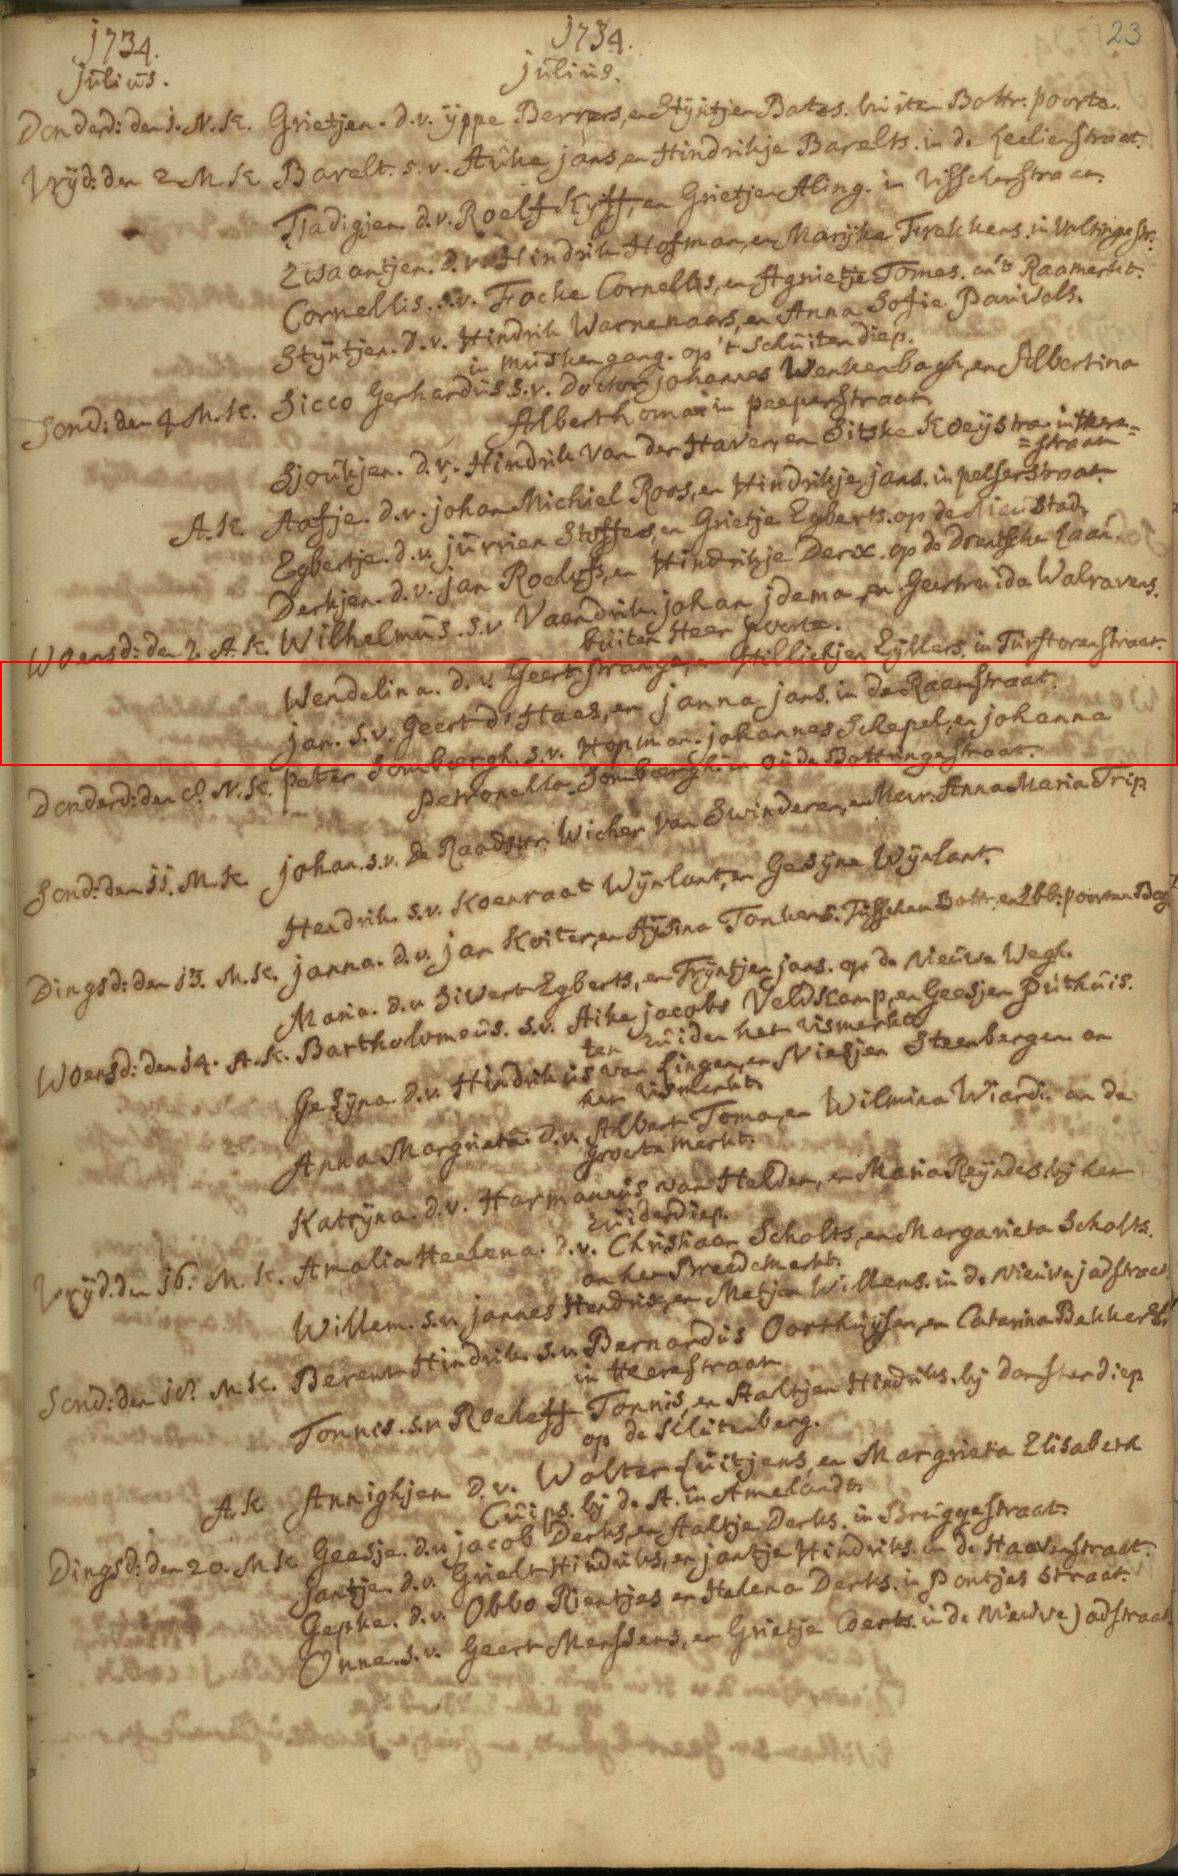 1734. 1734. 23
Julius. Julius.
Donderd: den 1. N. K. Grietjen. d. v. Yppe Berrers, en Styntjen Bates. buiten Bottr: poorte.
Vryd: den 2 M. K. Barelt. s. v. Auke Jans, en Hindrikje Barelts. in de Leelienstraat.
Tjadigjen d. v. Roelf, en Grietjen Aling. in Visscherstraat.
Zwaantjen. d. v. Hindrik Hofman, en Maryke Frekkens. in Volteringe str:
Cornellis. s. v. Focke Cornellis, en Agnietje Tomes. an't Raamerkt.
Styntjen. d. v. Hindrik Warnenaars, en Anna Sofie Pauwels.
in muskengang. op 't Schuitendiep.
Sond: den 4 M. K. Sicco Gerhardus s. v. Doctor Johannes Wenkenbagh, en Albertina
Alberthoma in peeperstraat.
Sjoukjen. d. v. Hindrik van der Haven, en Sitske Koeystra. in Heere=
=straat
A. K. Aafje. d. v. Johan Michiel Roos, en Hindrikje Jans. in pelserstraat.
Egbertje. d. v. Jurrien Stoffers, en Grietje Egberts. op de Nieustad.
Derkjen. d. v. Jan Roelffs, en Hindrikje Derx. op de Drentsche Laan.
Woensd: den 7. A. K. Wilhelmus. s. v. Vaendrik Johan Idema, en Geertruida Walravens.
buiten Heer poorte.
Wendelina. d. v. Geert Strange, en Hillichjen Eyllers. in Turftorenstraat.
Jan. s. v. Geert d' Haes, en Janna Jans. in de Raemstraat.
Donderd: den 8. N. K. Peter Sombeergh. s. v. Hopman. Johannes Schepel, en Johanna
Petronella Sombergh. in Oude Bottringestraat.
Sond: den 11. M. K. Johan. s. v. de Raadshr: Wicher van Swinderen, en Mevr: Anna Maria Trip
Hendrik s. v. Koenraat Wynlant, en Gesyna Wynlant.
Dingsd: den 13. M. K. Janna. d. v. Jan Koiter, en Aysina Tonkens. Tusschen Bottr: en Ebb: poorten
Maria. d. v. Siwert Egberts, en Tryntjen Jans. op de Nieuwe Wegh.
Woensd: den 14. A. K. Bartholomeus. s. v. Aike Jacobs Veldkamp, en Geesjen Puthuis.
ten Zuiden het Vismerkt.
Gesyna d. v. Hindrikus van Lingen, en Niesjen Steenbergen an
het Vismerkt.
Anna Margrieta. d. v. Albert Toma, en Wilmina Wiardi. an de
groote merkt.
Katryna. d. v. Harmannus van Helden, en Maria Reyndes. by het
Zuiderdiep.
Vryd. den 16. M. K. Amalia Heelena. d. v. Christiaan Scholts, en Margarieta Scholts.
an het Breedemerkt.
Willem. s. v. Jannes Hendriks, en Metjen Willems. in de Nieuwe Jadstraat
Sond: den 18. M. K. Berent Hindrik. s. v. Bernardus Oorthuijsen, en Catarina Bekker
in Heerestraat
Tonnes. s. v. Roeleff Tonnis, en Aaltjen Hindriks. by Damsterdiep
op de Klutenberg.
A. K. Annighjen d. v. Wolter Luitjens, en Margrieta Elisabeth
Cuips. by de A. in Amelandt.
Dingsd: den 20. M K Geesje. d. v. Jacob Derks, en Aaltje Derks. in Bruggestraat.
Jantje. d. v. Grielt Hindriks, en Jantje Hindriks. in de Haavenstraat.
Gepke. d. v. Obbo Rientjes en Helena Derks. in Pontjes Straat.
Onne. s. v. Geert Menssens, en Grietje Derks. in de Nieuwe Jadstraat